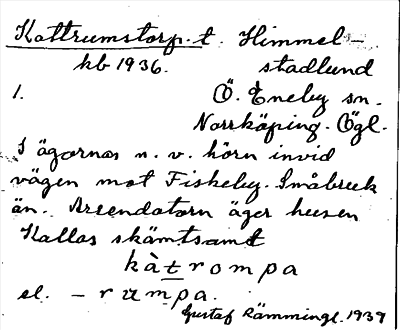 Kattrumstorp. t. Himmel-
kb 1936. stadlund
1. Ö. Eneby sn.
Norrköping. Ögl.
I ägornas n. v. hörn invid
vägen mot Fiskeby. Småbruk
än. Arrendatorn äger husen
Kallas skämtsamt
kàtrompa
el. - rumpa.
Gustaf Rämmingl. 1937